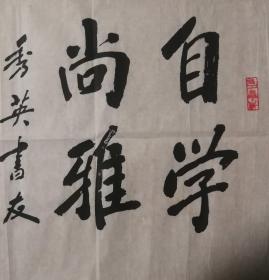 自学
尚雅
秀英书友